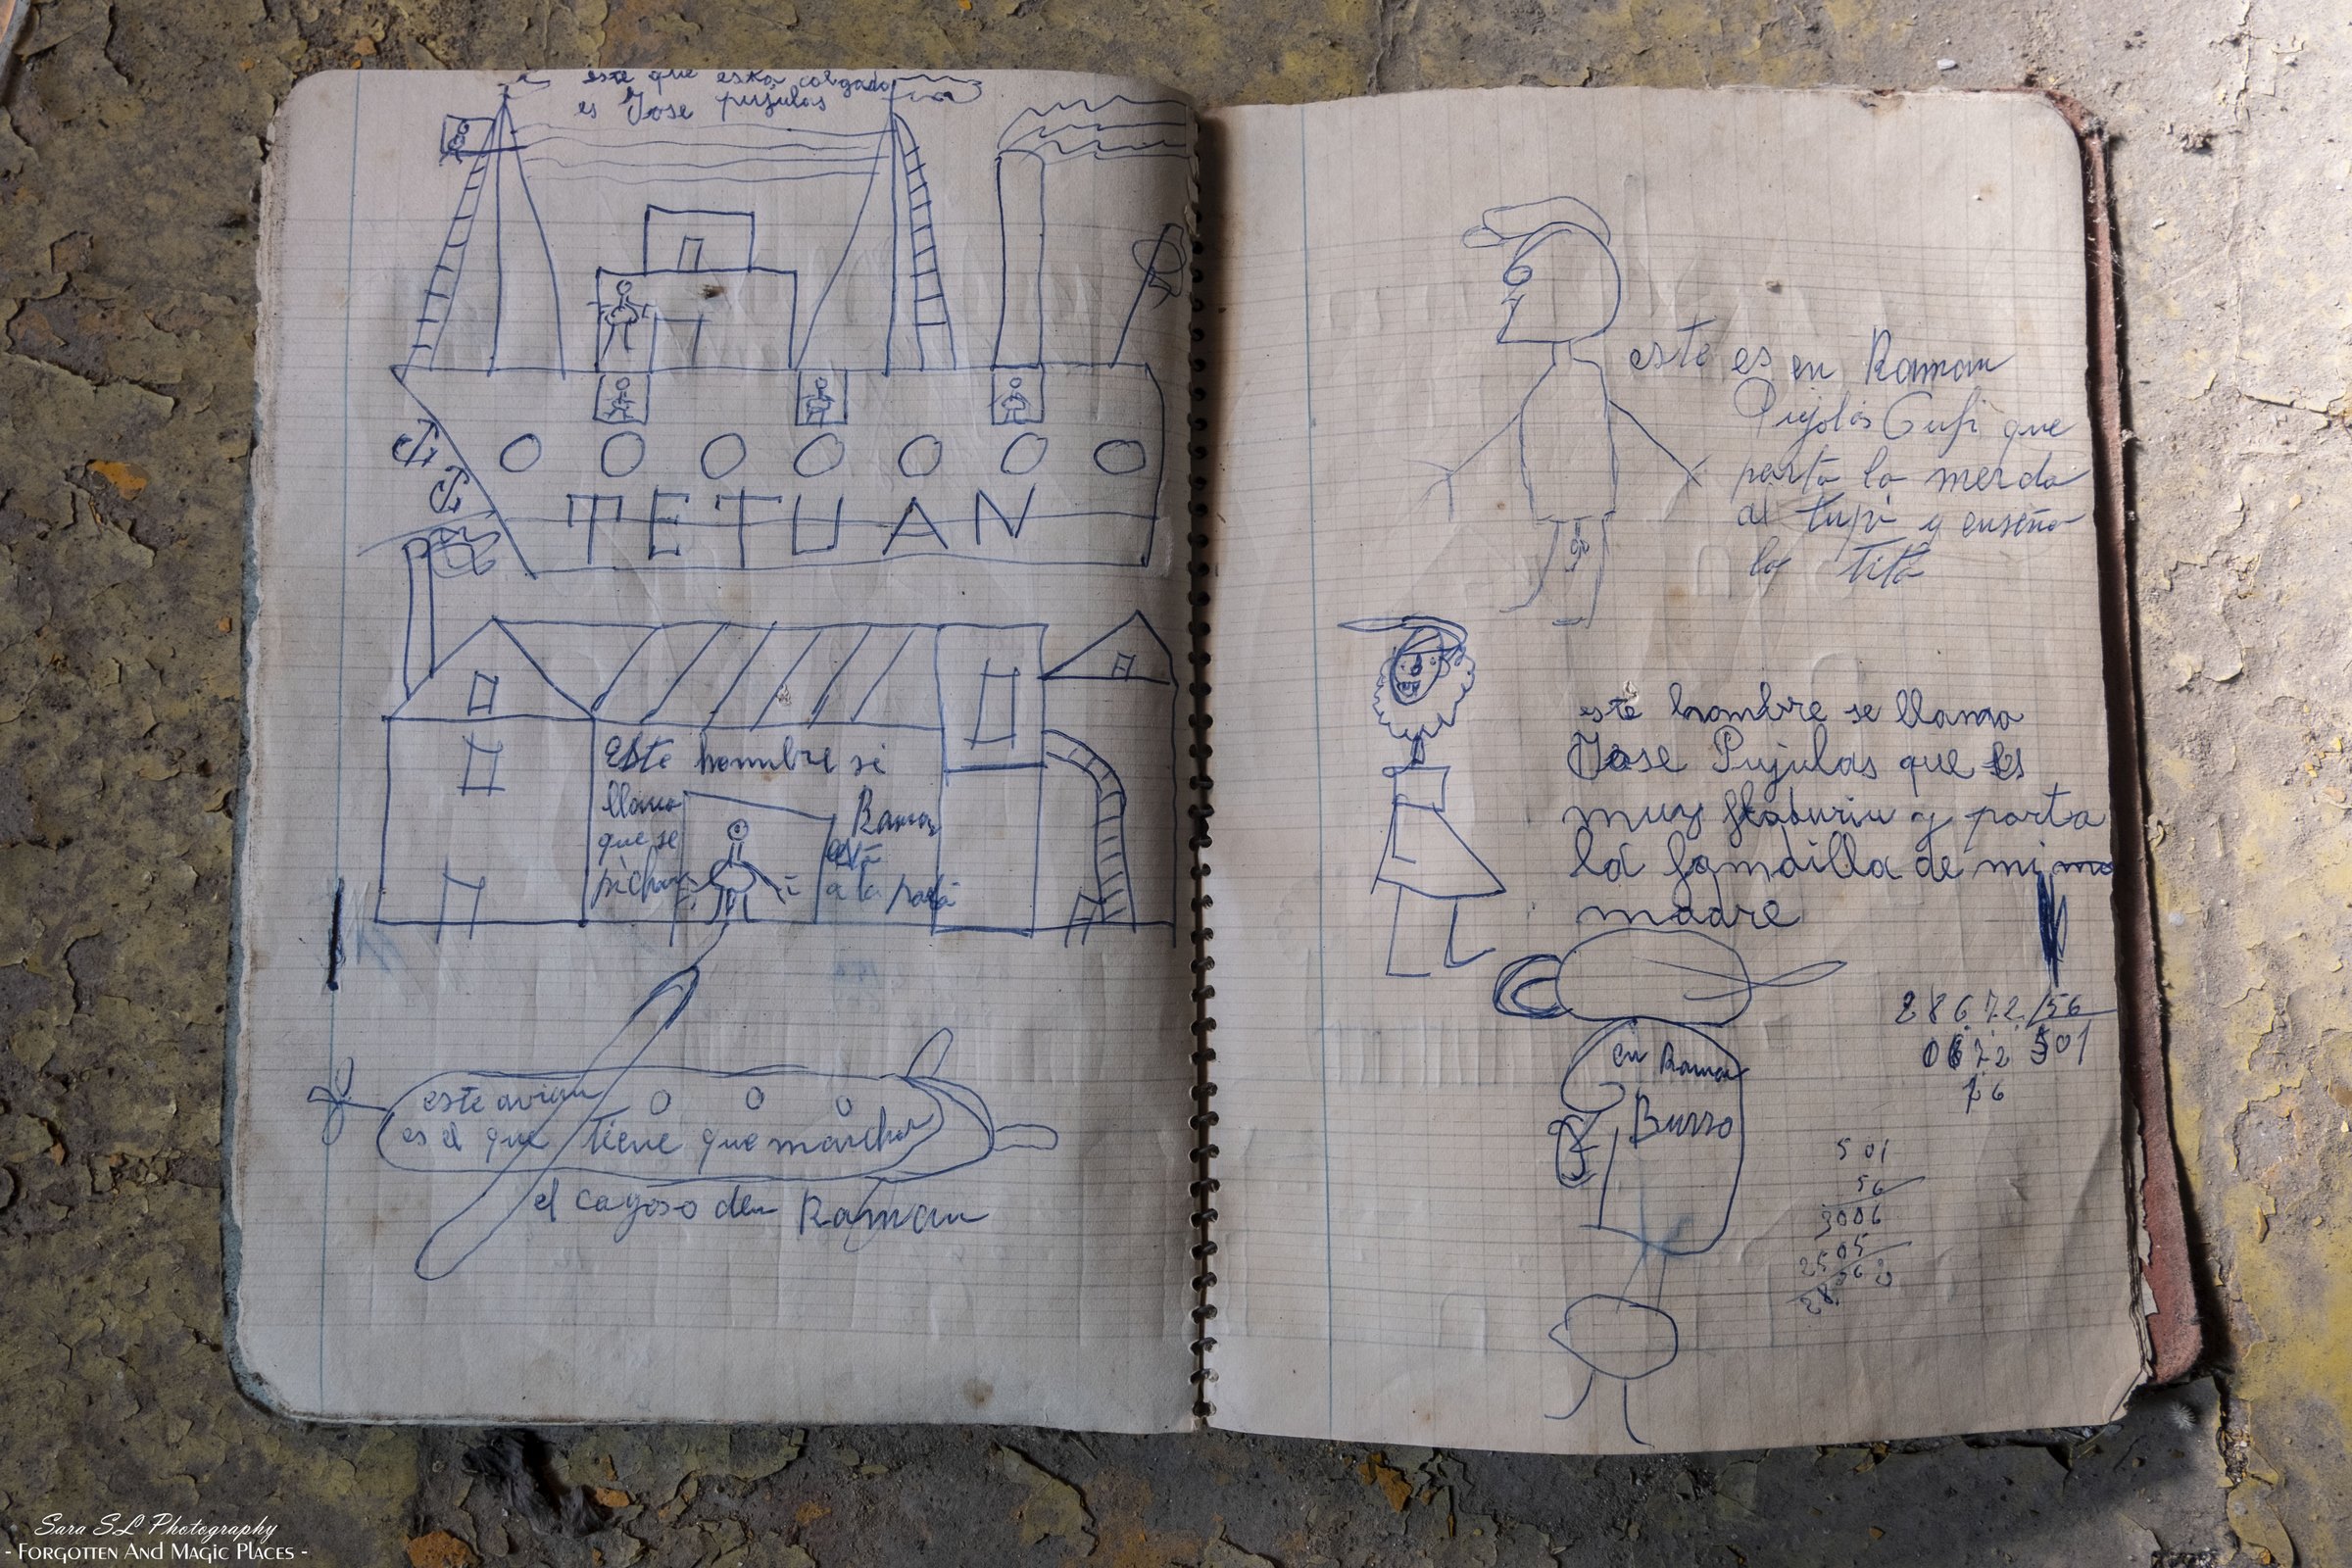 este que esta colgado
es Jose pujulas
TETUAN
Este hombre si
llama Ramon
que se está
a la
este avion
es el que tiene que marchar
el cagoso den Ramon
este es en Ramon
Pujolás Gufi que
porta la merda
al tupi y enseña
la tita
este hombre se llama
Jose Pujulas que es
muy y porta
la famdilla de mi
madre
en Ramon
Burro
28672/56
0672 501
501
56
3006
2505
Sara SL Photography
- FORGOTTEN AND MAGIC PLACES -